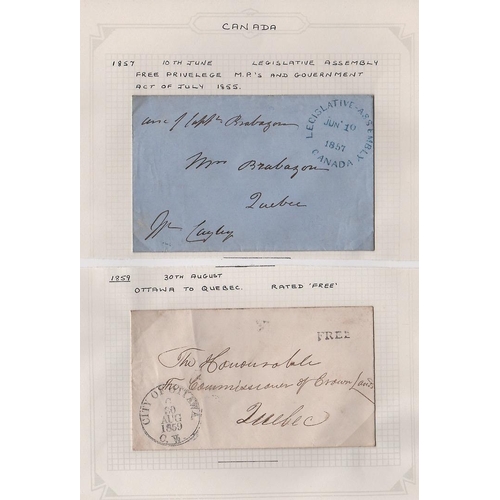 CANADA
1857 10TH JUNE LEGISLATIVE ASSEMBLY
FREE PRIVELEGE M.P.'S AND GOVERNMENT
ACT OF JULY 1855.
LEGISLATIVE-ASSEMBLY
JUN 10
1857
CANADA
Brabazon
Mrs Brabazon
Quebec
Cayley
1859 30TH AUGUST
OTTAWA TO QUEBEC. RATED 'FREE'
FREE
The Honourable
The Commissioner of Crown Lands
Quebec
CITY OF OTTAWA
30
AUG
1859
C.W.